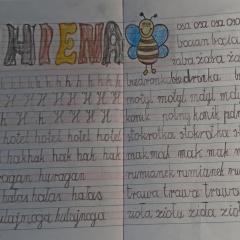 HIENA
h h h h h h h h
H H H H H H
hotel hotel hotel hotel
hak hak hak hak hak
huragan
hałas hałas hałas
hulajnoga
osa osa osa osa
bocian
żaba żaba
biedronka
motyl motyl motyl
konik polny konik polny
stokrotka stokrotka
mak mak mak mak
rumianek rumianek
trawa trawa trawa
zioła zioła zioła